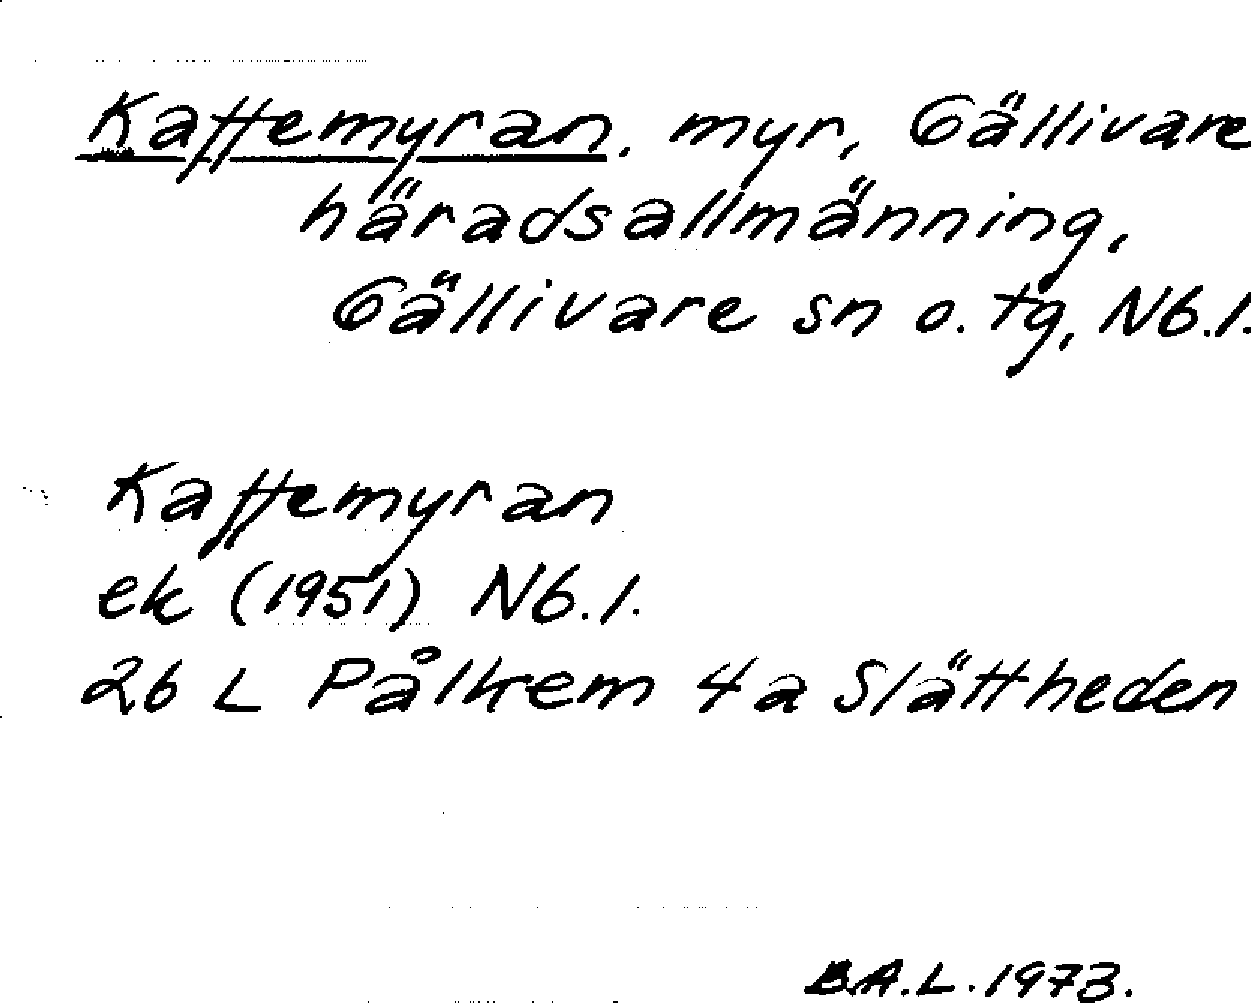 Kaffemyran, myr, Gällivare
häradsallmänning,
Gällivare sn o. tg, Nb.l.
Kaffemyran
ek (1951) Nb.l.
26 L Pålkem 4a Slättheden
B.A.L. 1973.